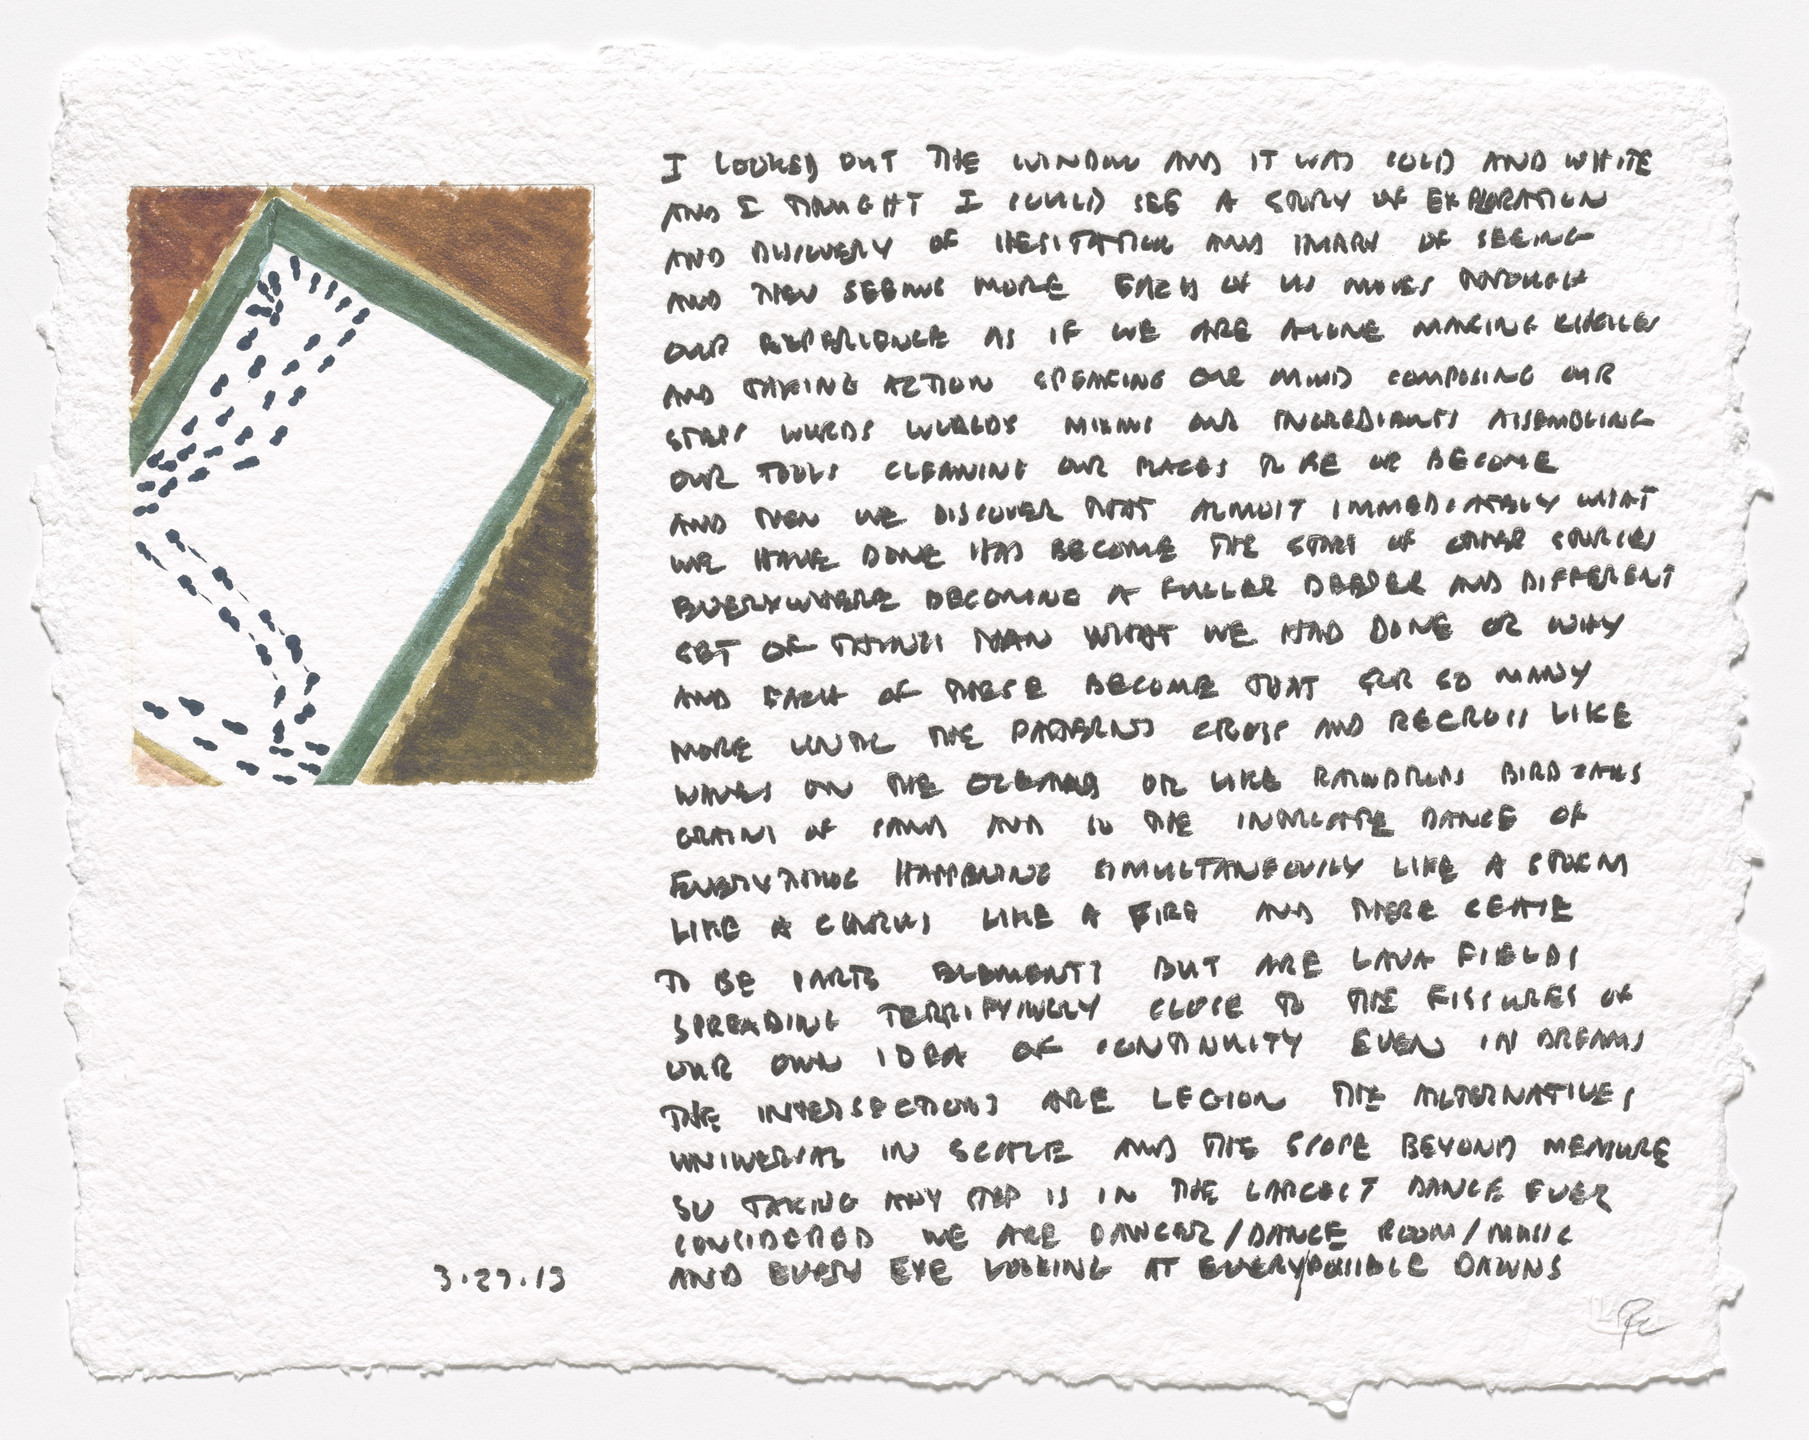 I LOOKED OUT THE WINDOW AND IT WAS COLD AND WHITE
AND I THOUGHT I COULD SEE A STORY OF EXPLORATION
AND DISCOVERY OF HESITATION AND OF SEEING
AND THEN SEEING MORE EACH OF US MOVES THROUGH
OUR EXPERIENCE AS IF WE ARE ALONE MAKING CHOICES
AND TAKING ACTION SPEAKING OUR MIND COMPOSING OUR
STEPS WORDS WORLDS MIXING OUR INGREDIANTS ASSEMBLING
OUR TOOLS CLEANING OUR PLACES TO BE OR BECOME
AND THEN WE DISCOVER THAT ALMOST IMMEDIATELY WHAT
WE HAVE DONE HAS BECOME THE START OF OTHER STORIES
EVERYWHERE BECOMING A FULLER DEEPER AND DIFFERENT
SET OF THINGS THAN WHAT WE HAD DONE OR WHY
AND EACH OF THESE BECOME THAT FOR SO MANY
MORE UNTIL THE PATTERNS CROSS AND RECROSS LIKE
WAVES ON THE OCEANS OR LIKE RAINDROPS BIRD TAILS
GRAINS OF SAND AND SO THE INTRICATE DANCE OF
EVERYTHING HAPPENING SIMULTANEOUSLY LIKE A STORM
LIKE A CHORUS LIKE A FIRE AND THERE CEASE
TO BE PARTS ELEMENTS BUT ARE LAVA FIELDS
SPREADING TERRIFYINGLY CLOSE TO THE FISSURES OF
OUR OWN IDEA OF CONTINUITY EVEN IN DREAMS
THE INTERSECTIONS ARE LEGION THE ALTERNATIVES
UNIVERSAL IN SCALE AND THE SCOPE BEYOND MEASURE
SO TAKING ANY STEP IS IN THE LARGEST DANCE EVER
CONSIDERED WE ARE DANCER/DANCE ROOM/MUSIC
AND EVERY EYE LOOKING AT EVERY/POSSIBLE DAWNS
3.27.13